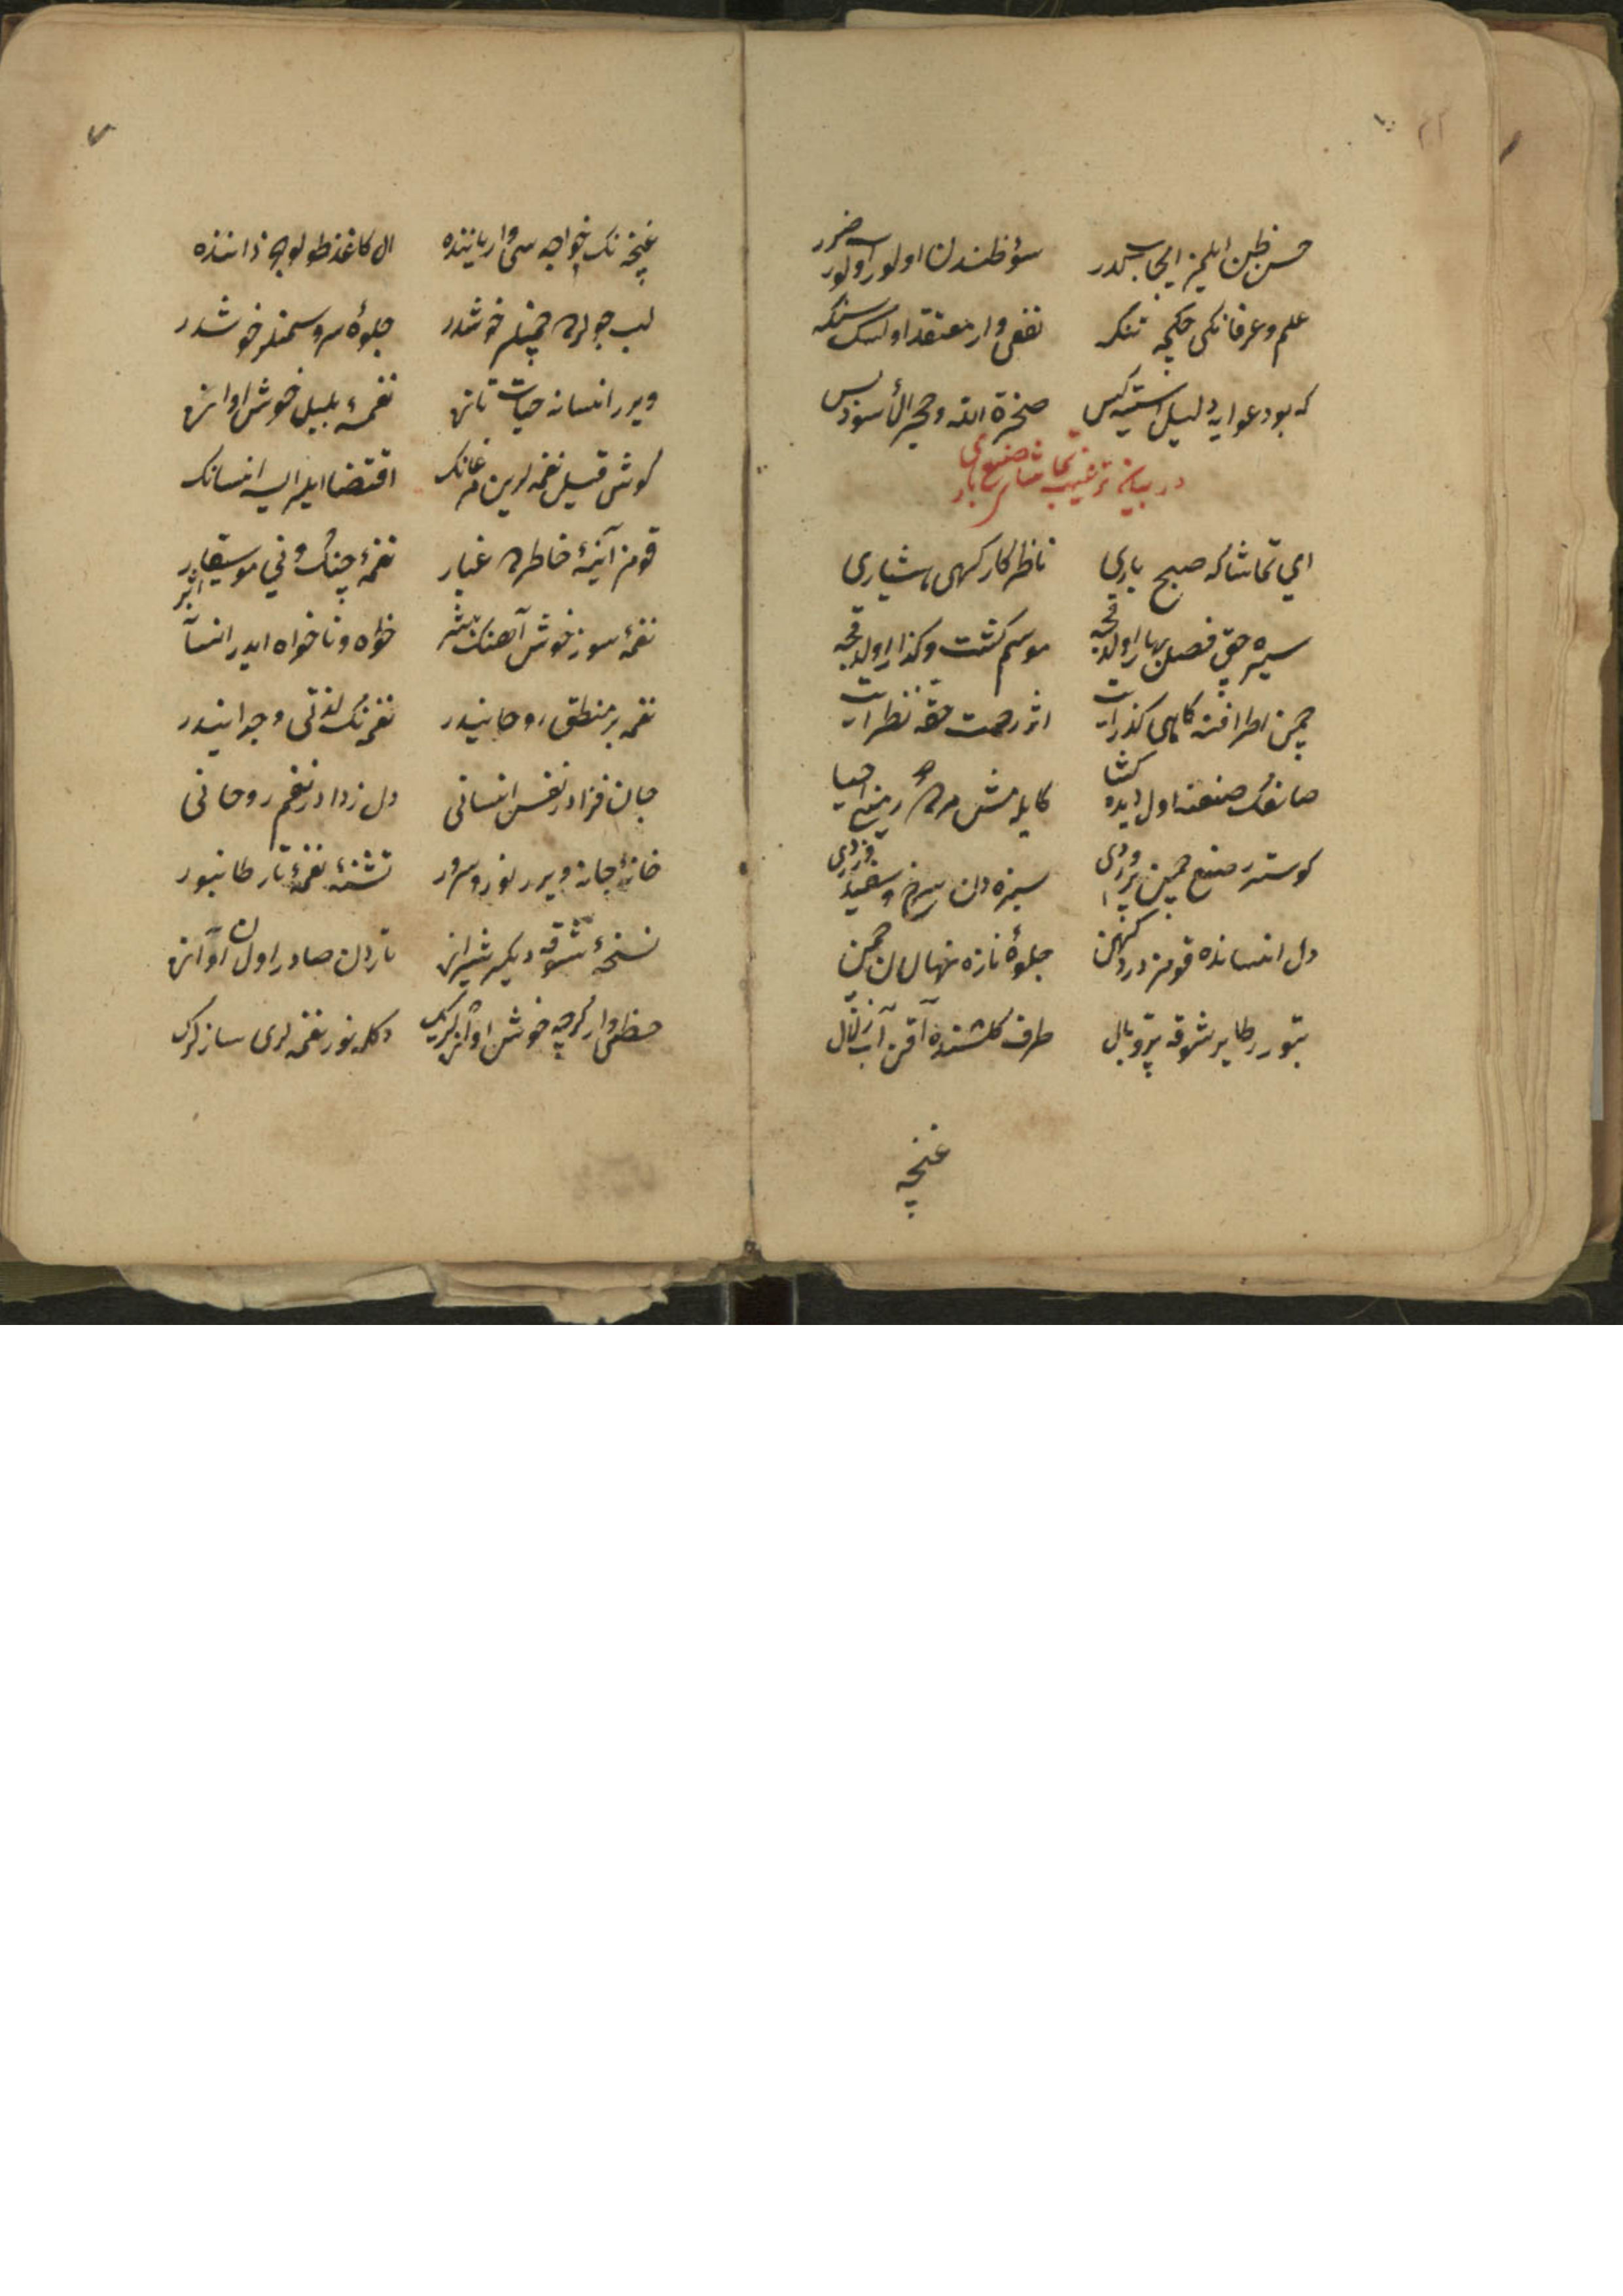 ٢٢
حسن ظن ایلمز ایجاب کدر سؤ ظندن اولور اولور سه ضرر
علم و عرفانکی چکمه تنکه نفعی وار معتقد اولسک سنکه
که بو دعوایه دلیل استیه کس صخرة الله و حجر الأسود بس
در بیان ترغیب تماشا صنع باری
ای تماشاکه صبح باری ناظر کارکهی هشیاری
سیره حق فصل بهار اولدقجه موسم کشت و کذار اولدقجه
چمن اطرافنه کاهی کذرات اثر رحمت حقه نظرات
صانعک صنعنه اول دیده کشا کایله مش مرده زمینی احیا
کوستر صنع چمن پروردی سبزه دن سرخ و سفید و زردی
دل انسانده قومز درد کهن جلوهٔ تازه نهالان چمن
بتورر طایر شوقه پر و بال طرف کلشنده آقن آب زلال
غنچه
غنچه نک بواجه سی وار یاننده ال کاغذ طولوجه ذاننده
لب جولرده چمنلر خوشدر جلوهٔ سرو سمنلر خوشدر
ویرر انسانه حیات تازه نغمهٔ بلبل خوش اوازه
کوش قیل نغمه لرین مرغانک اقتضا ایلر ایسه انسانک
قومز آینهٔ خاطرده غبار نغمهٔ چنک و نی موسیقار
نغمهٔ سوز خوش آهنک بشر خواه و ناخواه ایدر انسانه اثر
نغمه بر منطق روحانیدر نغمه نک لذتی وجدانیدر
جان فزادر نفس انسانی دل زدادر نغم روحانی
خانهٔ جانه ویرر نور و سرور تشنهٔ نغمهٔ تار طانبور
نسخهٔ شوقه دیکر شیرازه تاردن صادر اولان آوازه
حظی وار کرچه خوش اوازلرک دکله نور نغمه لری سازلرک